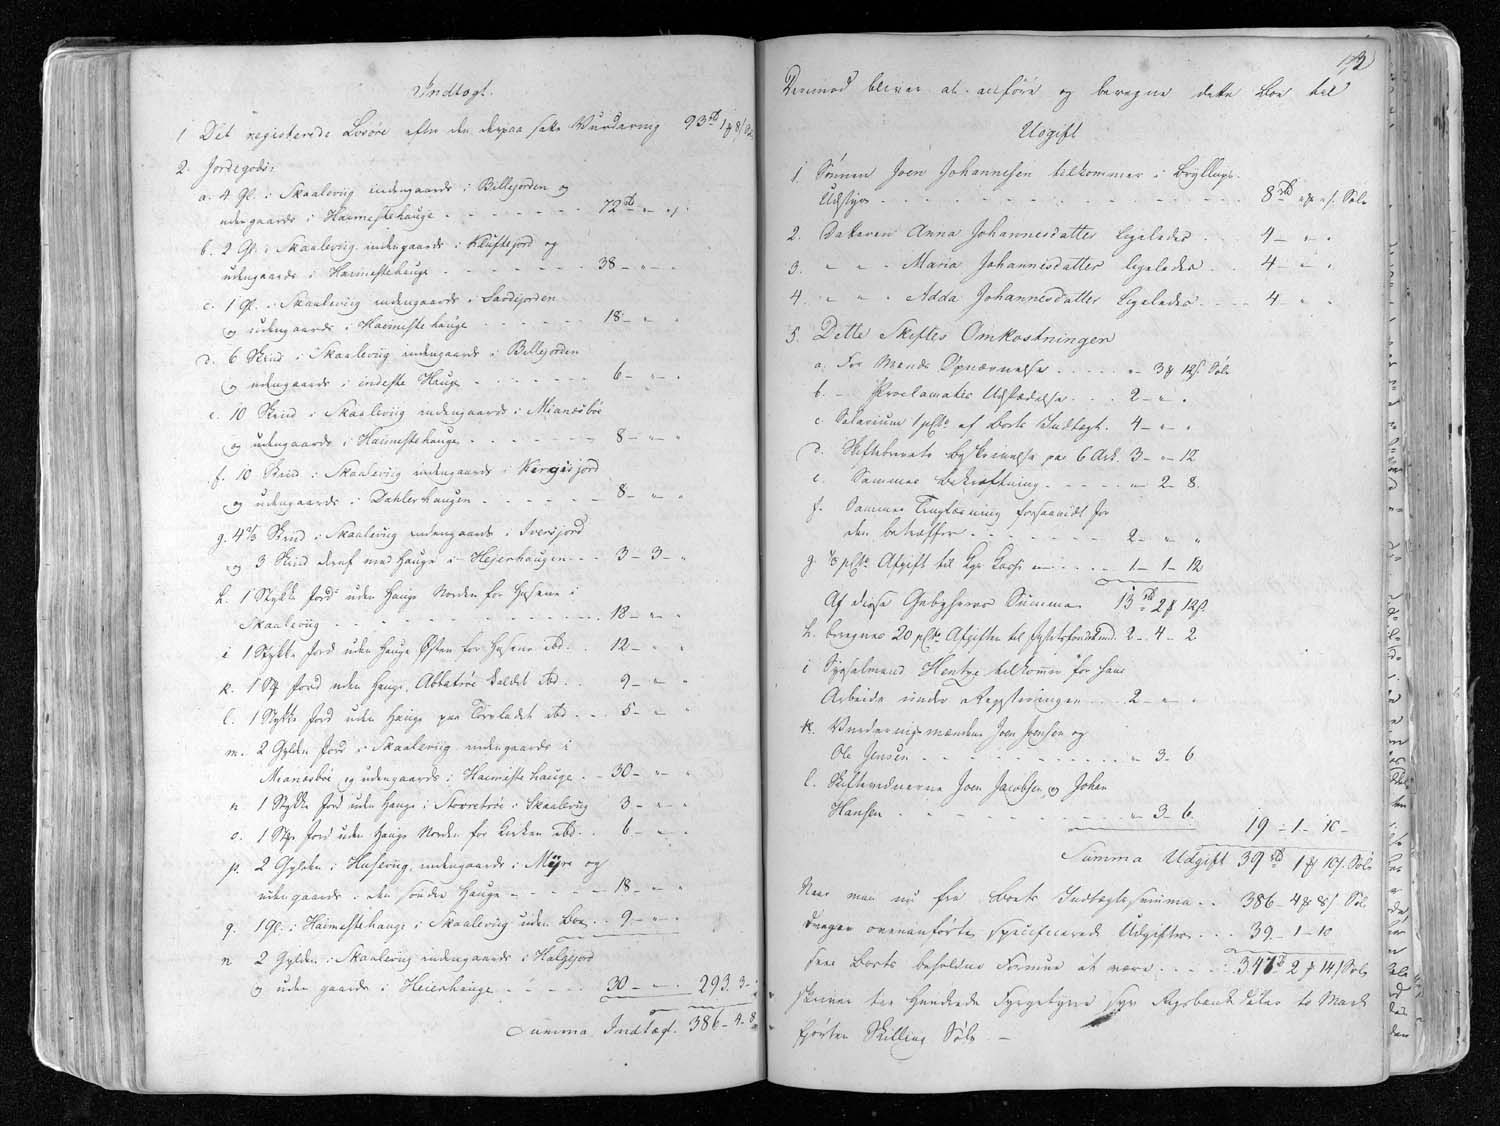 Indtægt.
1 Det registerede Løsøre efter den derpaa satte Vurdering 93 rd 1 ꝟ 8 s
2. Jordegods:
a. 4 Gl. i Skaalevüg indengaards i Billejorden og
udengaards i Haimestehauge 72 rd " "
b. 2 Gl. i Skaalevüg indengaards i Kluftejord og
udengaards i Haimestehauge 38 - " -
c. 1 Gl. i Skaalevüg indengaards i Sandejorden
og udengaards i Haimestehauge 18 - " "
d. 6 Skind i Skaalevüg indengaards i Billejorden
og udengaards i indeste Hauge 6 - " "
e. 10 Skind i Skaalevüg indengaards i Mianæsbøe
og udengaards i Haimestehauge 8 - " "
f. 10 Skind i Skaalevüg indengaards i Kergisjord
og udengaards i Dahlerhaugen 8 - " "
g. 4 2/3 Skind i Skaalevüg indengaards i Iversjord
og 3 Skind deraf med Hauge i Hejerhaugen 3 - 3 - "
h. 1 Stykke Jord uden Hauge Norden for Husene i
Skaalevüg 18 - " "
i 1 Stykke Jord uden Hauge Østen for Husene ibd. 12 - " "
k. 1 St. Jord uden Hauge, Abbatrøe kaldet ibd. 9 - " "
l. 1 Stykke Jord uden Hauge paa Torvladet ibd 5 - " "
m. 2 Gylden Jord i Skaalevüg indengaards i
Mianæsbøe og udengaards i Haimestehauge 30 - " "
n. 1 Stykke Jord uden Hauge i Storetrøe i Skaalevüg 3 - " "
o. 1 St. Jord uden Hauge Norden for Kirken ibd. 6 - " "
p. 2 Gylden i Husevüg, indengaards i Myre og
udengaards i den søndre Hauge 18 - " "
q. 1 Gl. i Haimestehauge i Skaalevüg uden Bøe 9 - " "
2 Gylden i Skaalevüg indengaards i Helgejord
og uden gaards i Heierhauge 30 - " - 293. 3 -
Summa Indtægt. 386 - 4 - 8
173
Derimod bliver at anføre og beregne dette Boe til
Udgift
1. Sønnen Joen Johannesen tilkommer i Bryllups-
Udstyr 8 rd " ꝟ " s. Sølv
2. Datteren Anna Johannesdatter ligeledes 4 - " "
3. " " Maria Johannesdatter ligeledes 4 - " "
4. " " Adda Johannesdatter ligeledes 4 - " "
5. Dette Skiftes Omkostninger
a. For Mænds Opnævnelse " 3 ꝟ 12 s. Sølv
b. - Proclamates Udstædelse 2 - " "
c Salarium 1 pCto af Boets Indtægt. 4 - " "
d. Skiftebrevets Beskrivelse paa 6 Ark. 3 - " 12
e. Sammes Bekræftning " 2 - 8.
f. Sammes Tinglæsning forsaavidt Jor
den betræffer 2 - " "
g. 1/3 pCto Afgift til Kgs Casse 1 - 1 - 12
Af disse Gebyhrers Summa 13 rd 2 ꝟ 12 s.
h. beregnes 20 pCto Afgiften til Justitsfondet ind. 2 - 4 - 2
i Sysselmand Hentze tilkommer for sine
Arbeide under Registeringen 2 - " "
k. Vurderingsmændene Joen Joensen og
Ole Jensen " 3 - 6
l. Skiftevidnerne Joen Jacobsen og Johan
Hansen " 3 - 6. 19 - 1 - 10 -
Summa Udgift 39 rd 1 ꝟ 10 s. Sølv
Naar man nu fra Boets Indtægtssumma 386 - 4 ꝟ 8 s. Sølv
drager ovenanførte specificerede Udgifter 39 - 1 - 10
sees Boets beholdne Formue at være 347 rd 2 ꝟ 14 s. Sølv
skriver tre Hundrede Fyrgetyve syv Rigsbank daler to Mark
fjorten Skilling Sølv. -